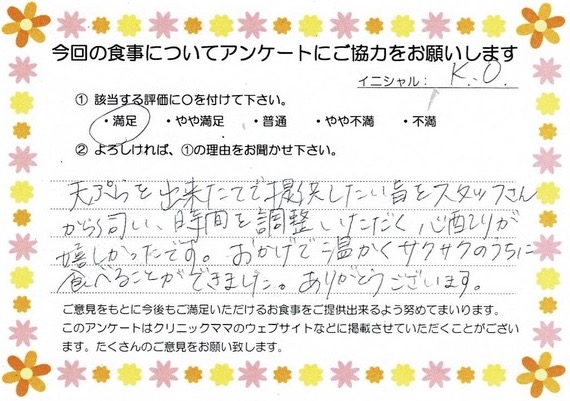 今回の食事についてアンケートにご協力をお願いします
イニシャル： K.O.
① 該当する評価に○を付けて下さい。
・満足 ・やや満足 ・普通 ・やや不満 ・不満
② よろしければ、①の理由をお聞かせ下さい。
天ぷらを出来たてで提供したい旨をスタッフさん
から伺い、時間を調整いただく心配りが
嬉しかったです。おかげで温かくサクサクのうちに
食べることができました。ありがとうございます。
ご意見をもとに今後もご満足いただけるお食事をご提供出来るよう努めてまいります。
このアンケートはクリニックママのウェブサイトなどに掲載させていただくことがござい
ます。たくさんのご意見をお願い致します。